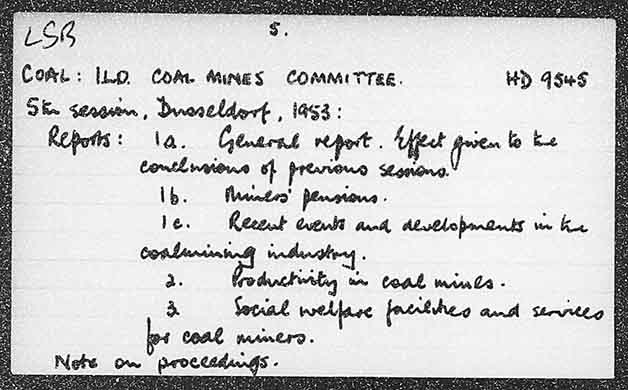 LSB
5.
COAL: I.L.O. COAL MINES COMMITTEE. HD 9545
5th session, Dusseldorf, 1953:
Reports: 1a. General report. Effect given to the
conclusions of previous sessions.
1b. Miners' pensions.
1c. Recent events and developments in the
coalmining industry.
2. Productivity in coal mines.
3. Social welfare facilities and services
for coal miners.
Note on proceedings.